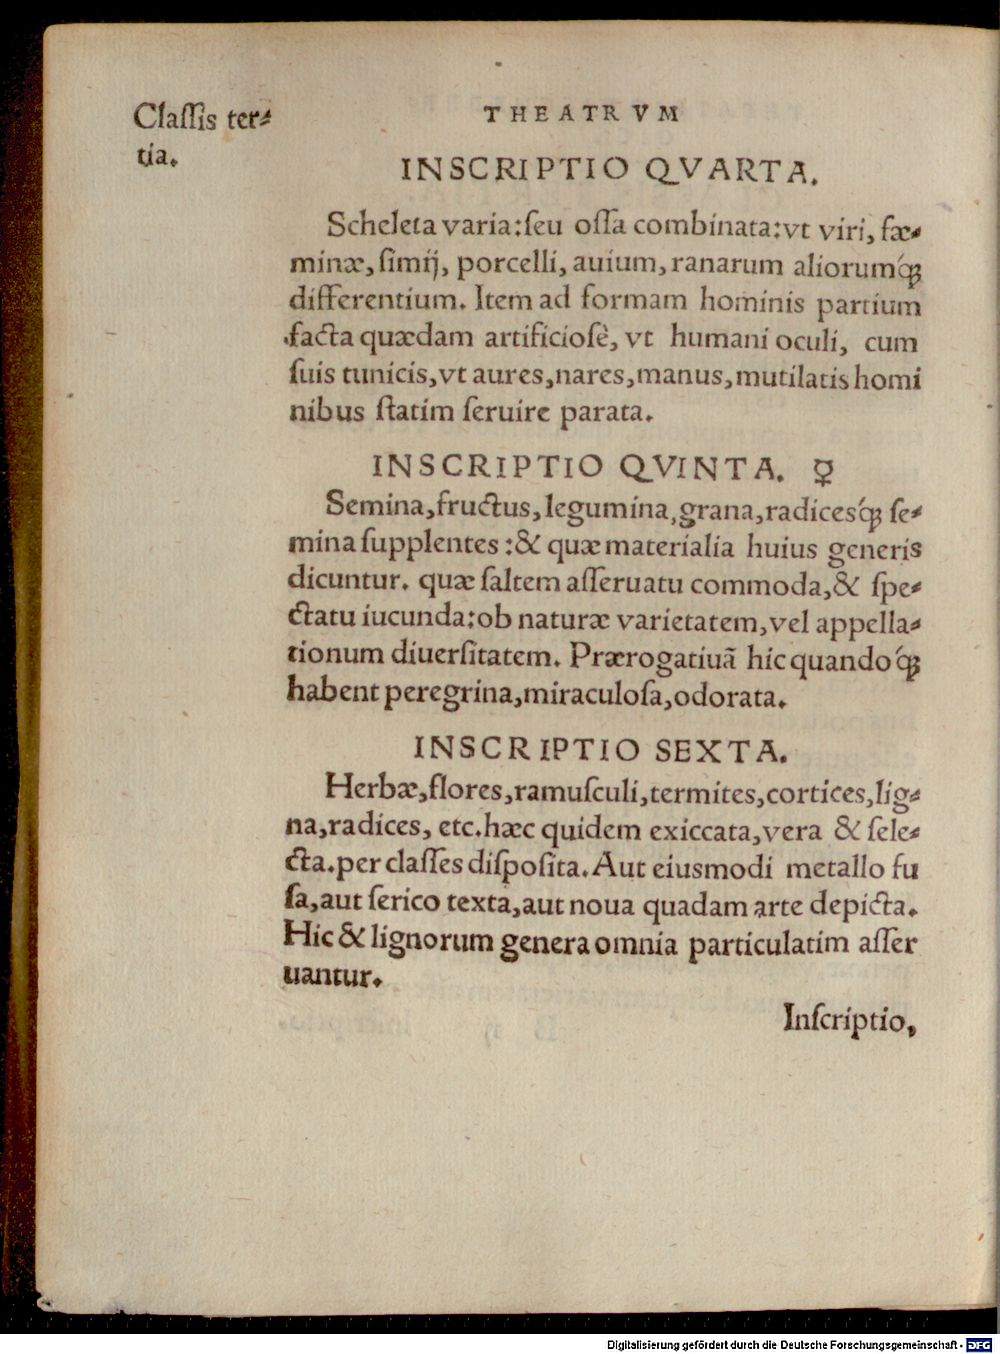 Claſſis ter⸗
tia.
THEATRVM
INSCRIPTIO QVARTA.
Scheleta varia: ſeu oſſa combinata: vt viri, fæ⸗
minæ, ſimij, porcelli, auium, ranarum aliorumq́;
differentium. Item ad formam hominis partium
facta quædam artificioſè, vt humani oculi, cum
ſuis tunicis, vt aures, nares, manus, mutilatis homi
nibus ſtatim ſeruire parata.
INSCRIPTIO QVINTA. ☿
Semina, fructus, legumina, grana, radicesq́; ſe⸗
mina ſupplentes: & quæ materialia huius generis
dicuntur. quæ ſaltem aſſeruatu commoda, & ſpe⸗
ctatu iucunda: ob naturæ varietatem, vel appella⸗
tionum diuerſitatem. Prærogatiuā hic quandoq́;
habent peregrina, miraculoſa, odorata.
INSCRIPTIO SEXTA.
Herbæ, flores, ramuſculi, termites, cortices, lig⸗
na, radices, etc. hæc quidem exiccata, vera & ſele⸗
cta. per claſſes diſpoſita. Aut eiusmodi metallo fu
ſa, aut ſerico texta, aut noua quadam arte depicta.
Hic & lignorum genera omnia particulatim aſſer
uantur.
Inſcriptio,
Digitalisierung gefördert durch die Deutsche Forschungsgemeinschaft - DFG